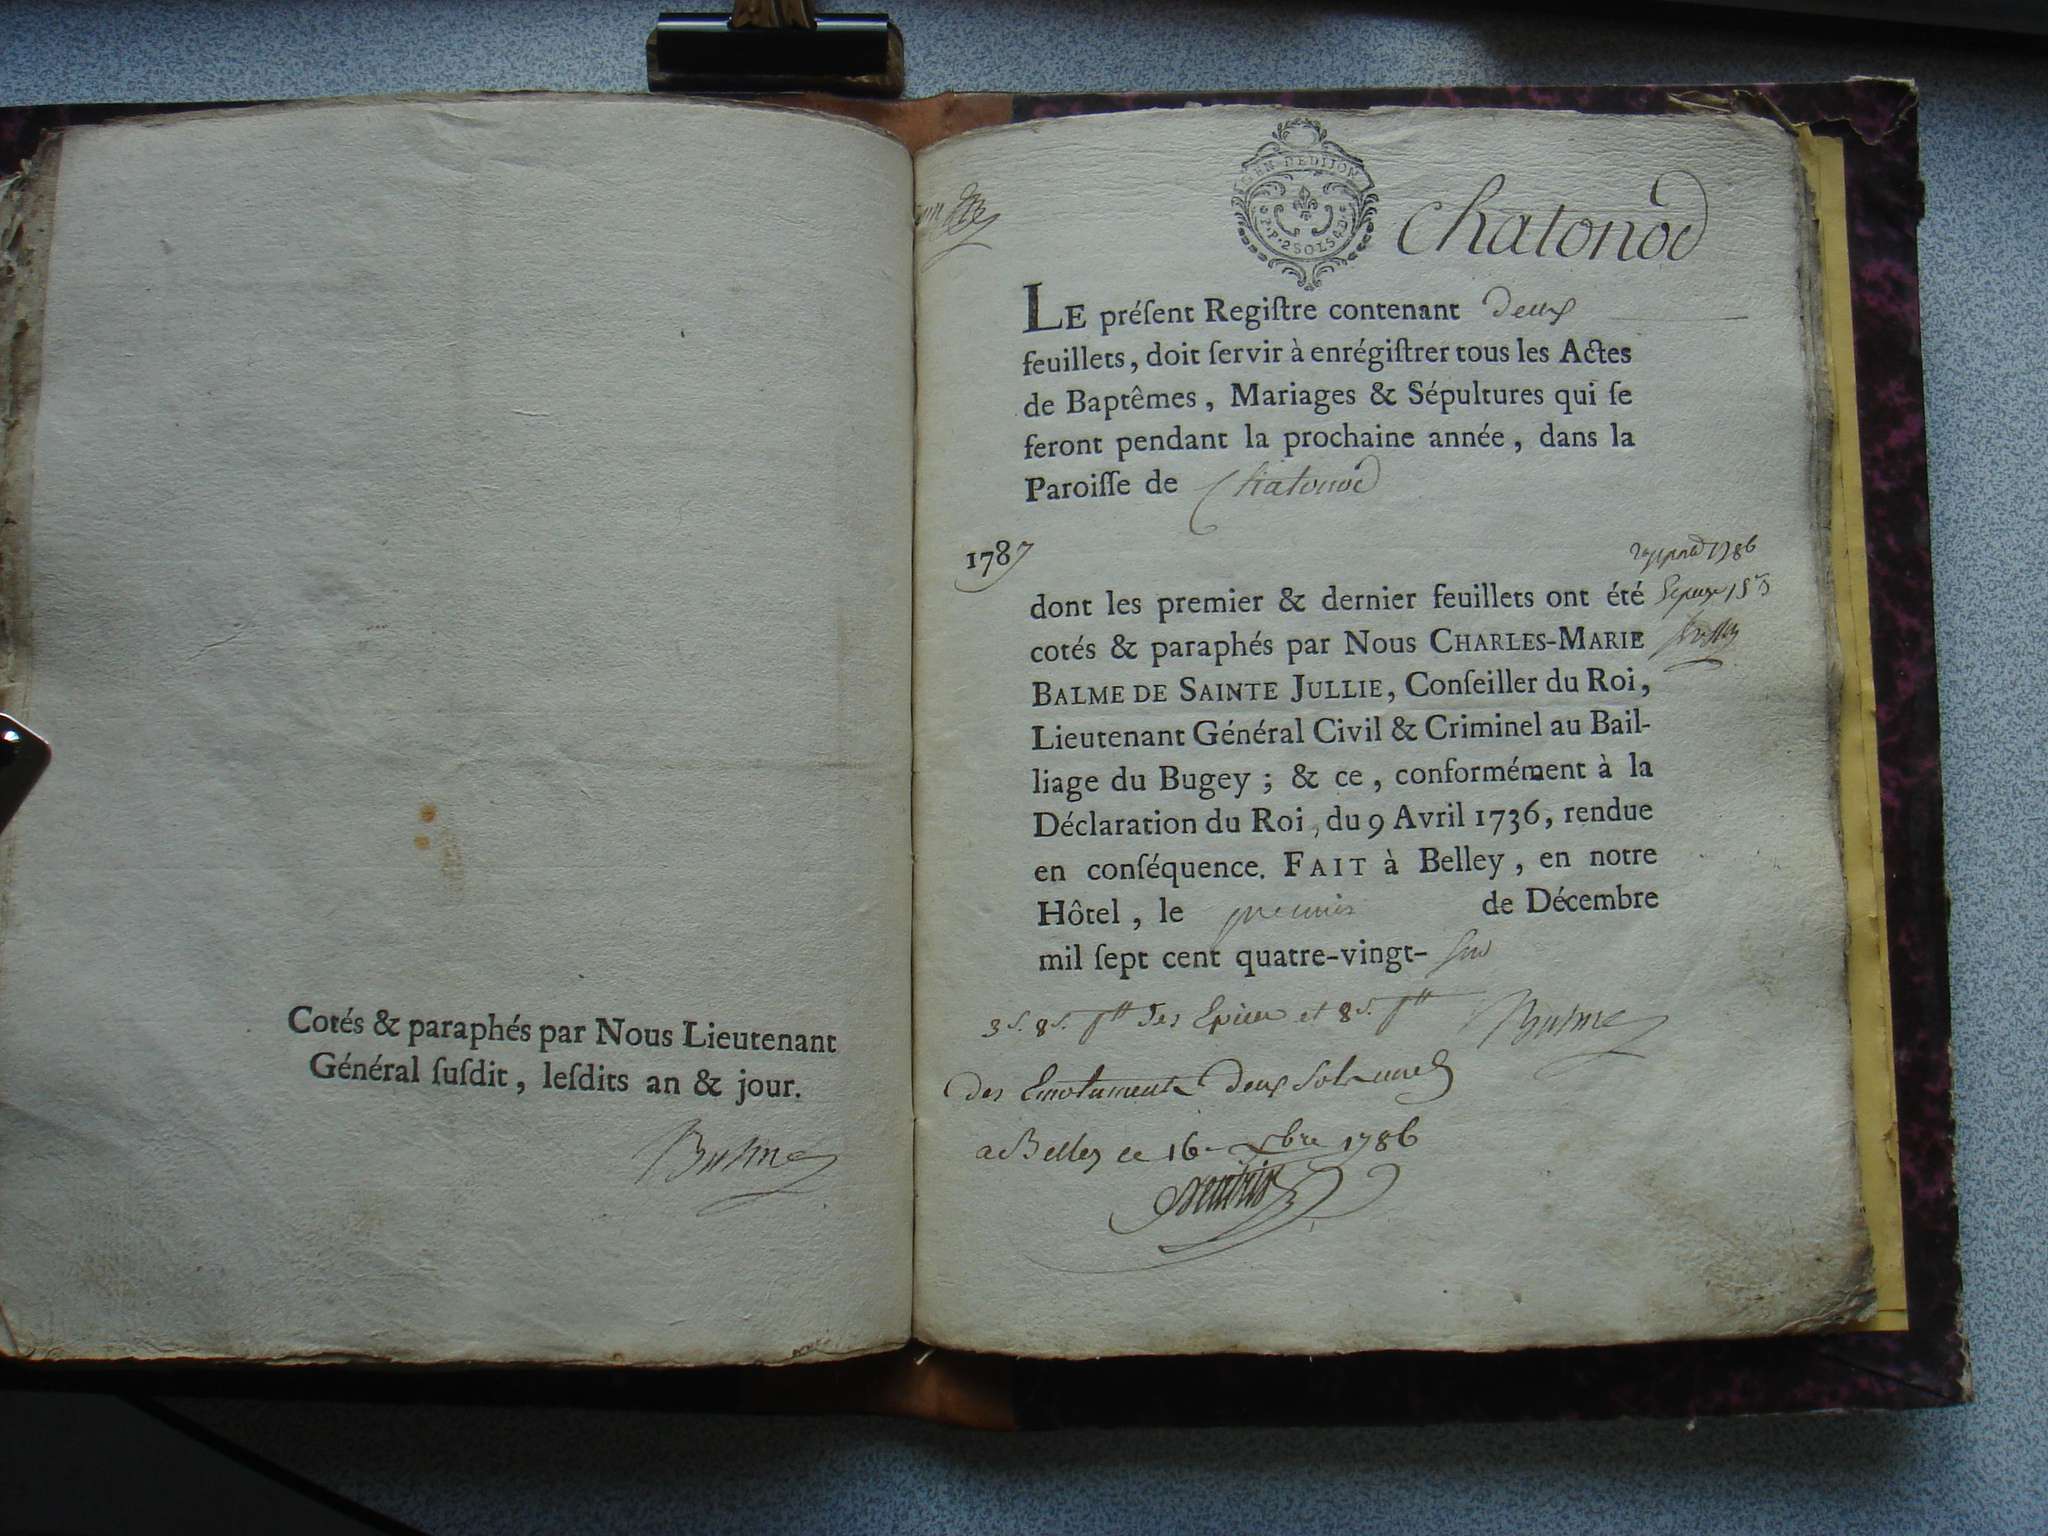 Cotés & paraphés par Nous Lieutenant
Général ſuſdit, leſdits an & jour.
Balme
GEN DE DIJON
P.P. 2 SOLS 4 D.
Chatonod
LE préſent Regiſtre contenant deux
feuillets, doit ſervir à enrégiſtrer tous les Actes
de Baptêmes, Mariages & Sépultures qui ſe
feront pendant la prochaine année, dans la
Paroiſſe de Chatonod
1787
dont les premier & dernier feuillets ont été
cotés & paraphés par Nous CHARLES-MARIE
BALME DE SAINTE JULLIE, Conſeiller du Roi,
Lieutenant Général Civil & Criminel au Bail-
liage du Bugey ; & ce, conformément à la
Déclaration du Roi, du 9 Avril 1736, rendue
en conſéquence. FAIT à Belley, en notre
Hôtel, le premier de Décembre
mil ſept cent quatre-vingt-six
1786
3s. 8d. des Epices et 8d.
Balme
des Emoluments deux sols
a Belley ce 16 Xbre 1786